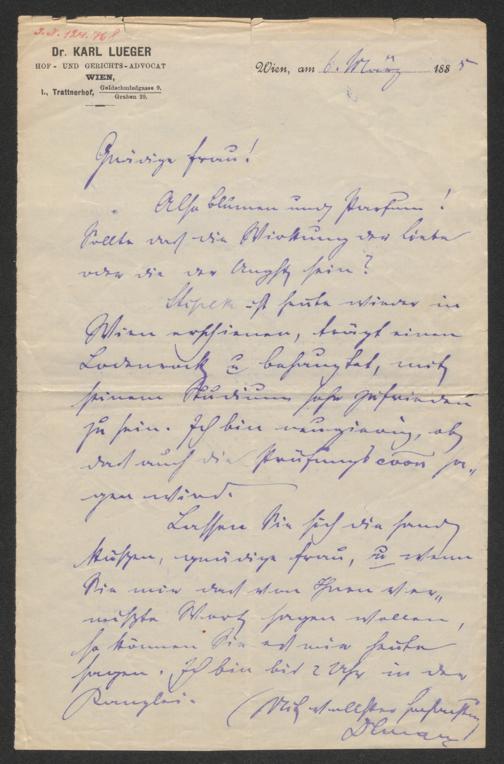 I.N. 124.768
Dr. KARL LUEGER
HOF- UND GERICHTS-ADVOCAT
WIEN,
I., Trattnerhof, Goldschmiedgasse 9.
Graben 29.
Wien, am 6. März 1885
Gnädige Frau!
Also Blumen und Parfum!
Sollte das die Wirkung der Liebe
oder die der Angst sein?
ist heute wieder in
Wien erschienen, trägt einen
Lodenrock u behauptet, mit
seinem Studium sehr zufrieden
zu sein. Ich bin neugierig, ob
das auch die Prüfungs sa„
gen wird.
Lassen Sie sich die Hand
küssen, gnädige Frau, u wenn
Sie mir das von Ihnen ver„
Wort sagen wollen,
so können Sie es mir heute
sagen. Ich bin bis 2 Uhr in der
Kanzlei.
Mit vollster Hochachtung